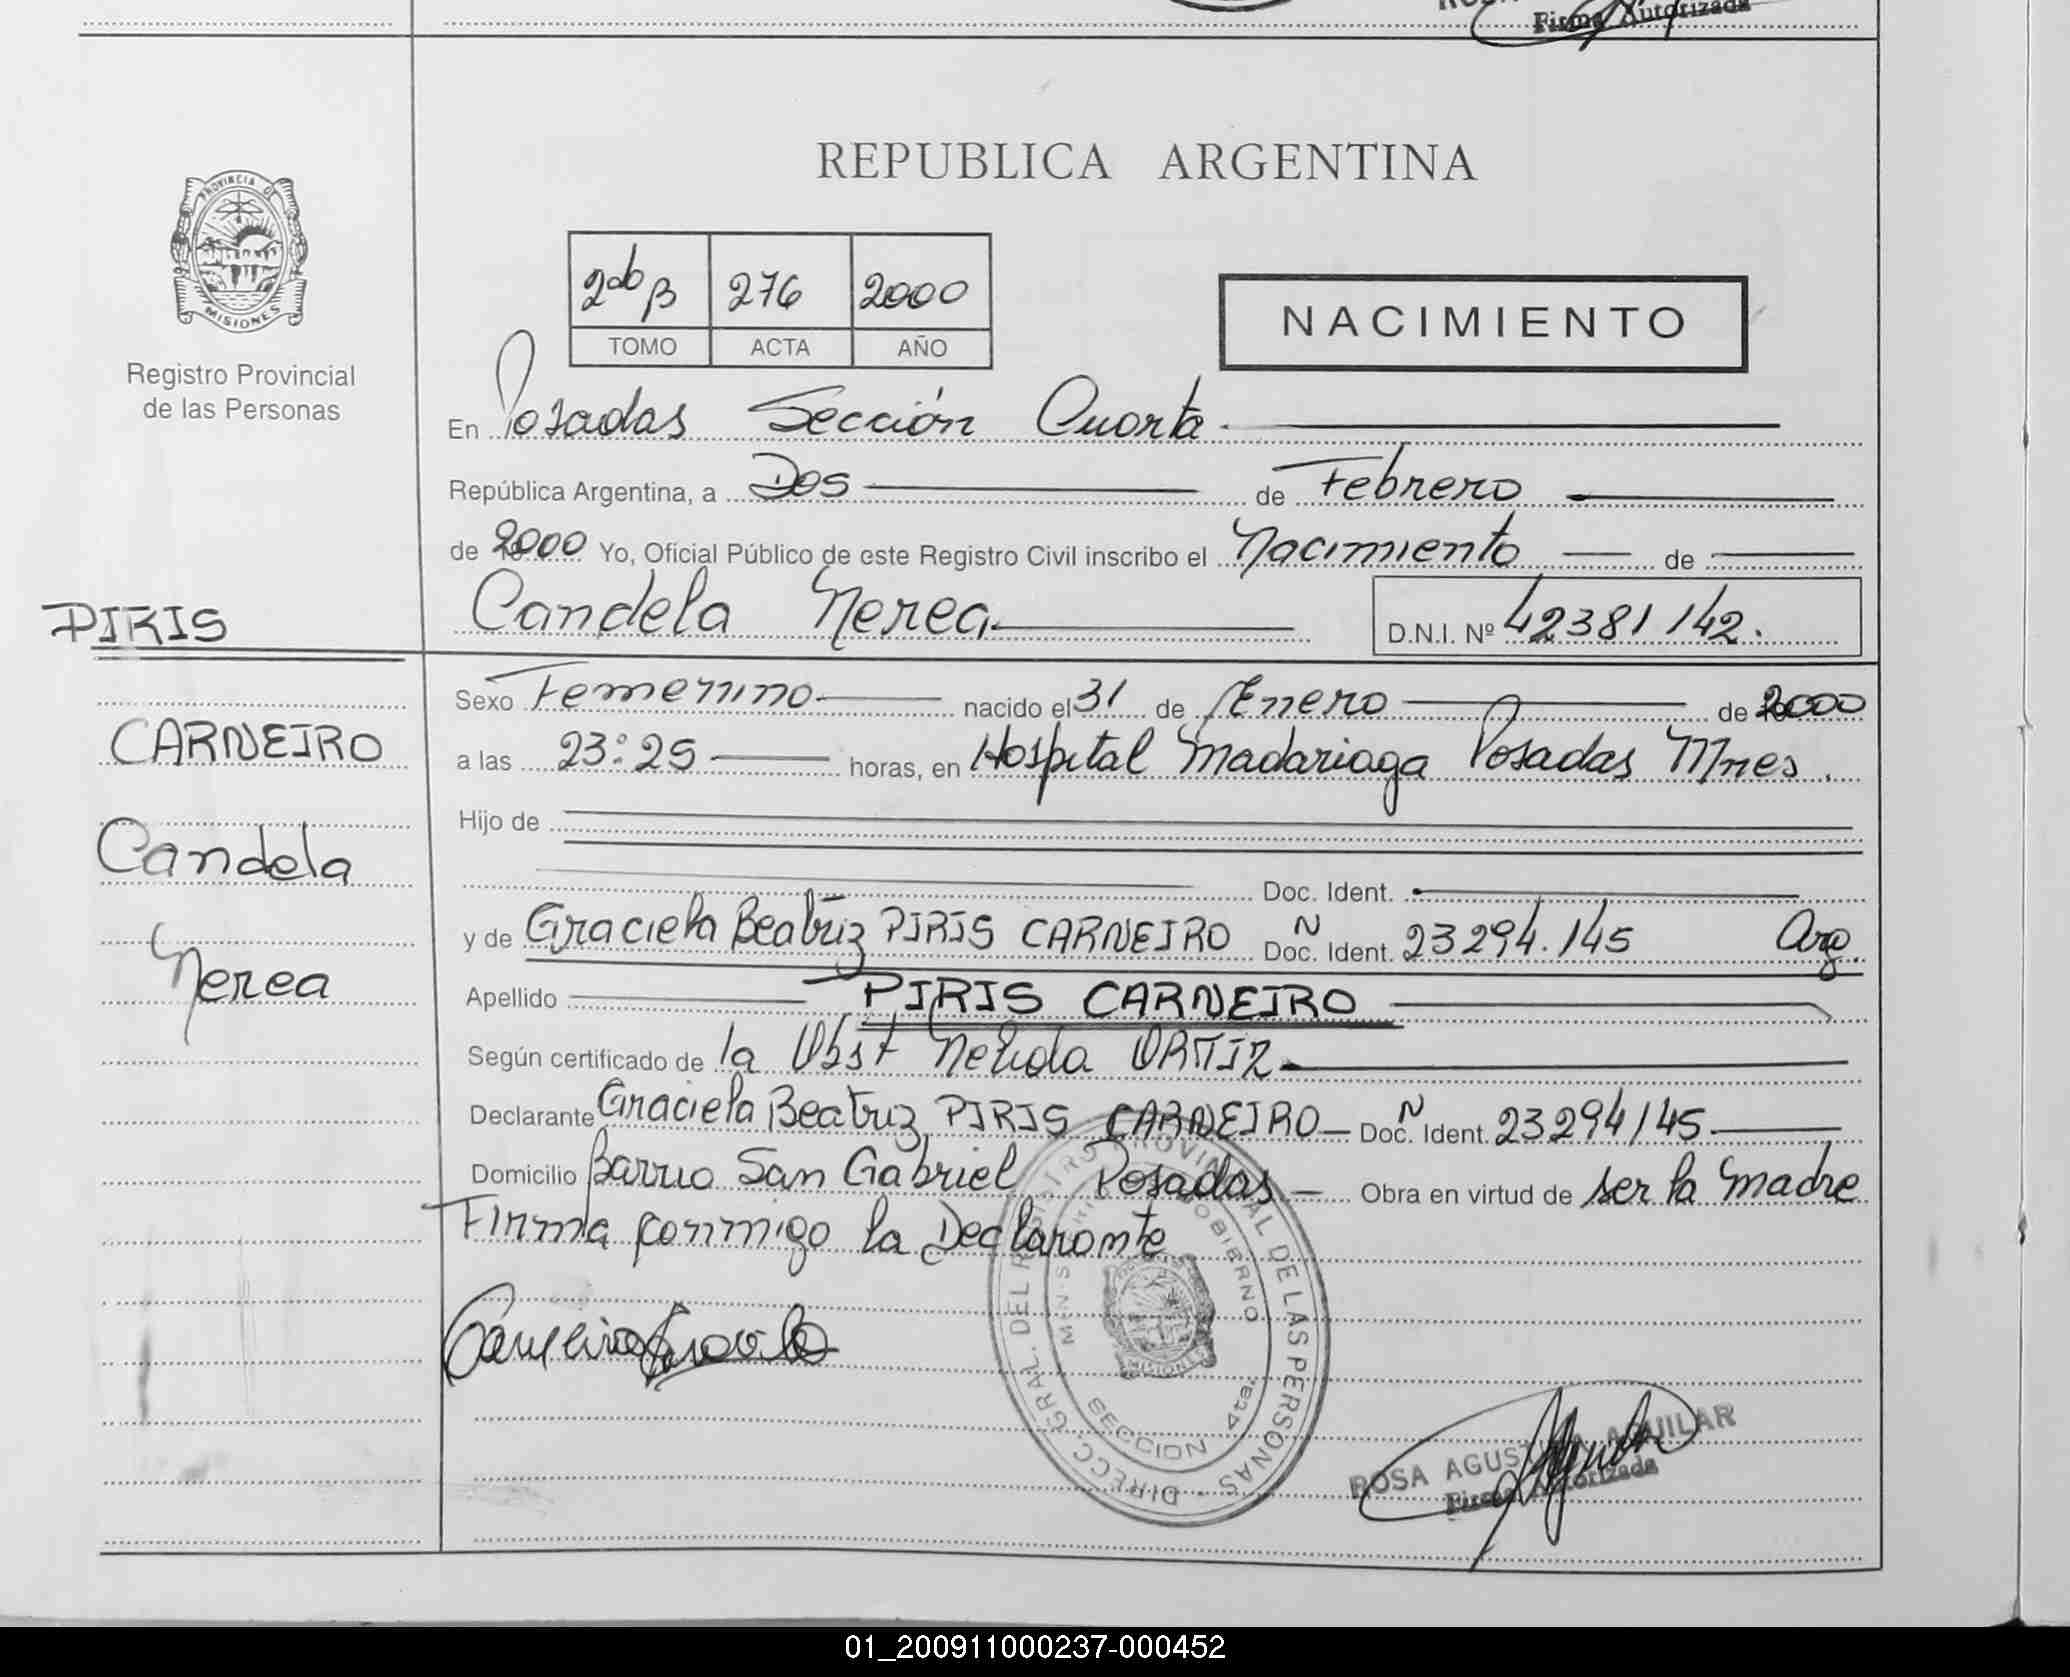 Firma Autorizada
REPUBLICA ARGENTINA
PROVINCIA DE
MISIONES
Registro Provincial
de las Personas
2do B 276 2000
TOMO ACTA AÑO
NACIMIENTO
En Posadas Sección Cuarta
República Argentina, a Dos de Febrero
de 2000 Yo, Oficial Público de este Registro Civil inscribo el Nacimiento de
Candela Nerea D.N.I. Nº 42381142.
PIRIS
CARNEIRO
Candela
Nerea
Sexo Femenino nacido el 31 de Enero de 2000
a las 23:25 horas, en Hospital Madariaga Posadas Mnes.
Hijo de
Doc. Ident.
y de Graciela Beatriz PIRIS CARNEIRO Doc. N Ident. 23294.145 Arg.
Apellido PIRIS CARNEIRO
Según certificado de la Obst Nelida ORTIZ
Declarante Graciela Beatriz PIRIS CARNEIRO Doc. N Ident. 23294145
Domicilio Barrio San Gabriel Posadas Obra en virtud de ser la Madre
Firma conmigo la Declarante
DIRECC. GRAL. DEL REGISTRO PROVINCIAL DE LAS PERSONAS
MINISTERIO GOBIERNO
MISIONES
SECCION 4ta.
Carneiro Graciela
ROSA AGUSTINA AGUILAR
Firma Autorizada
01_200911000237-000452